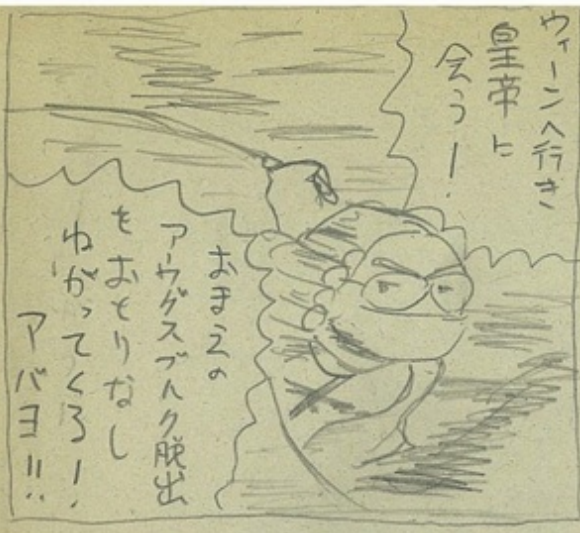 ウィーンへ行き
皇帝に
会う!
おまえの
アウグスブルク脱出
をおとりなし
ねがってくる!
アバヨ!!